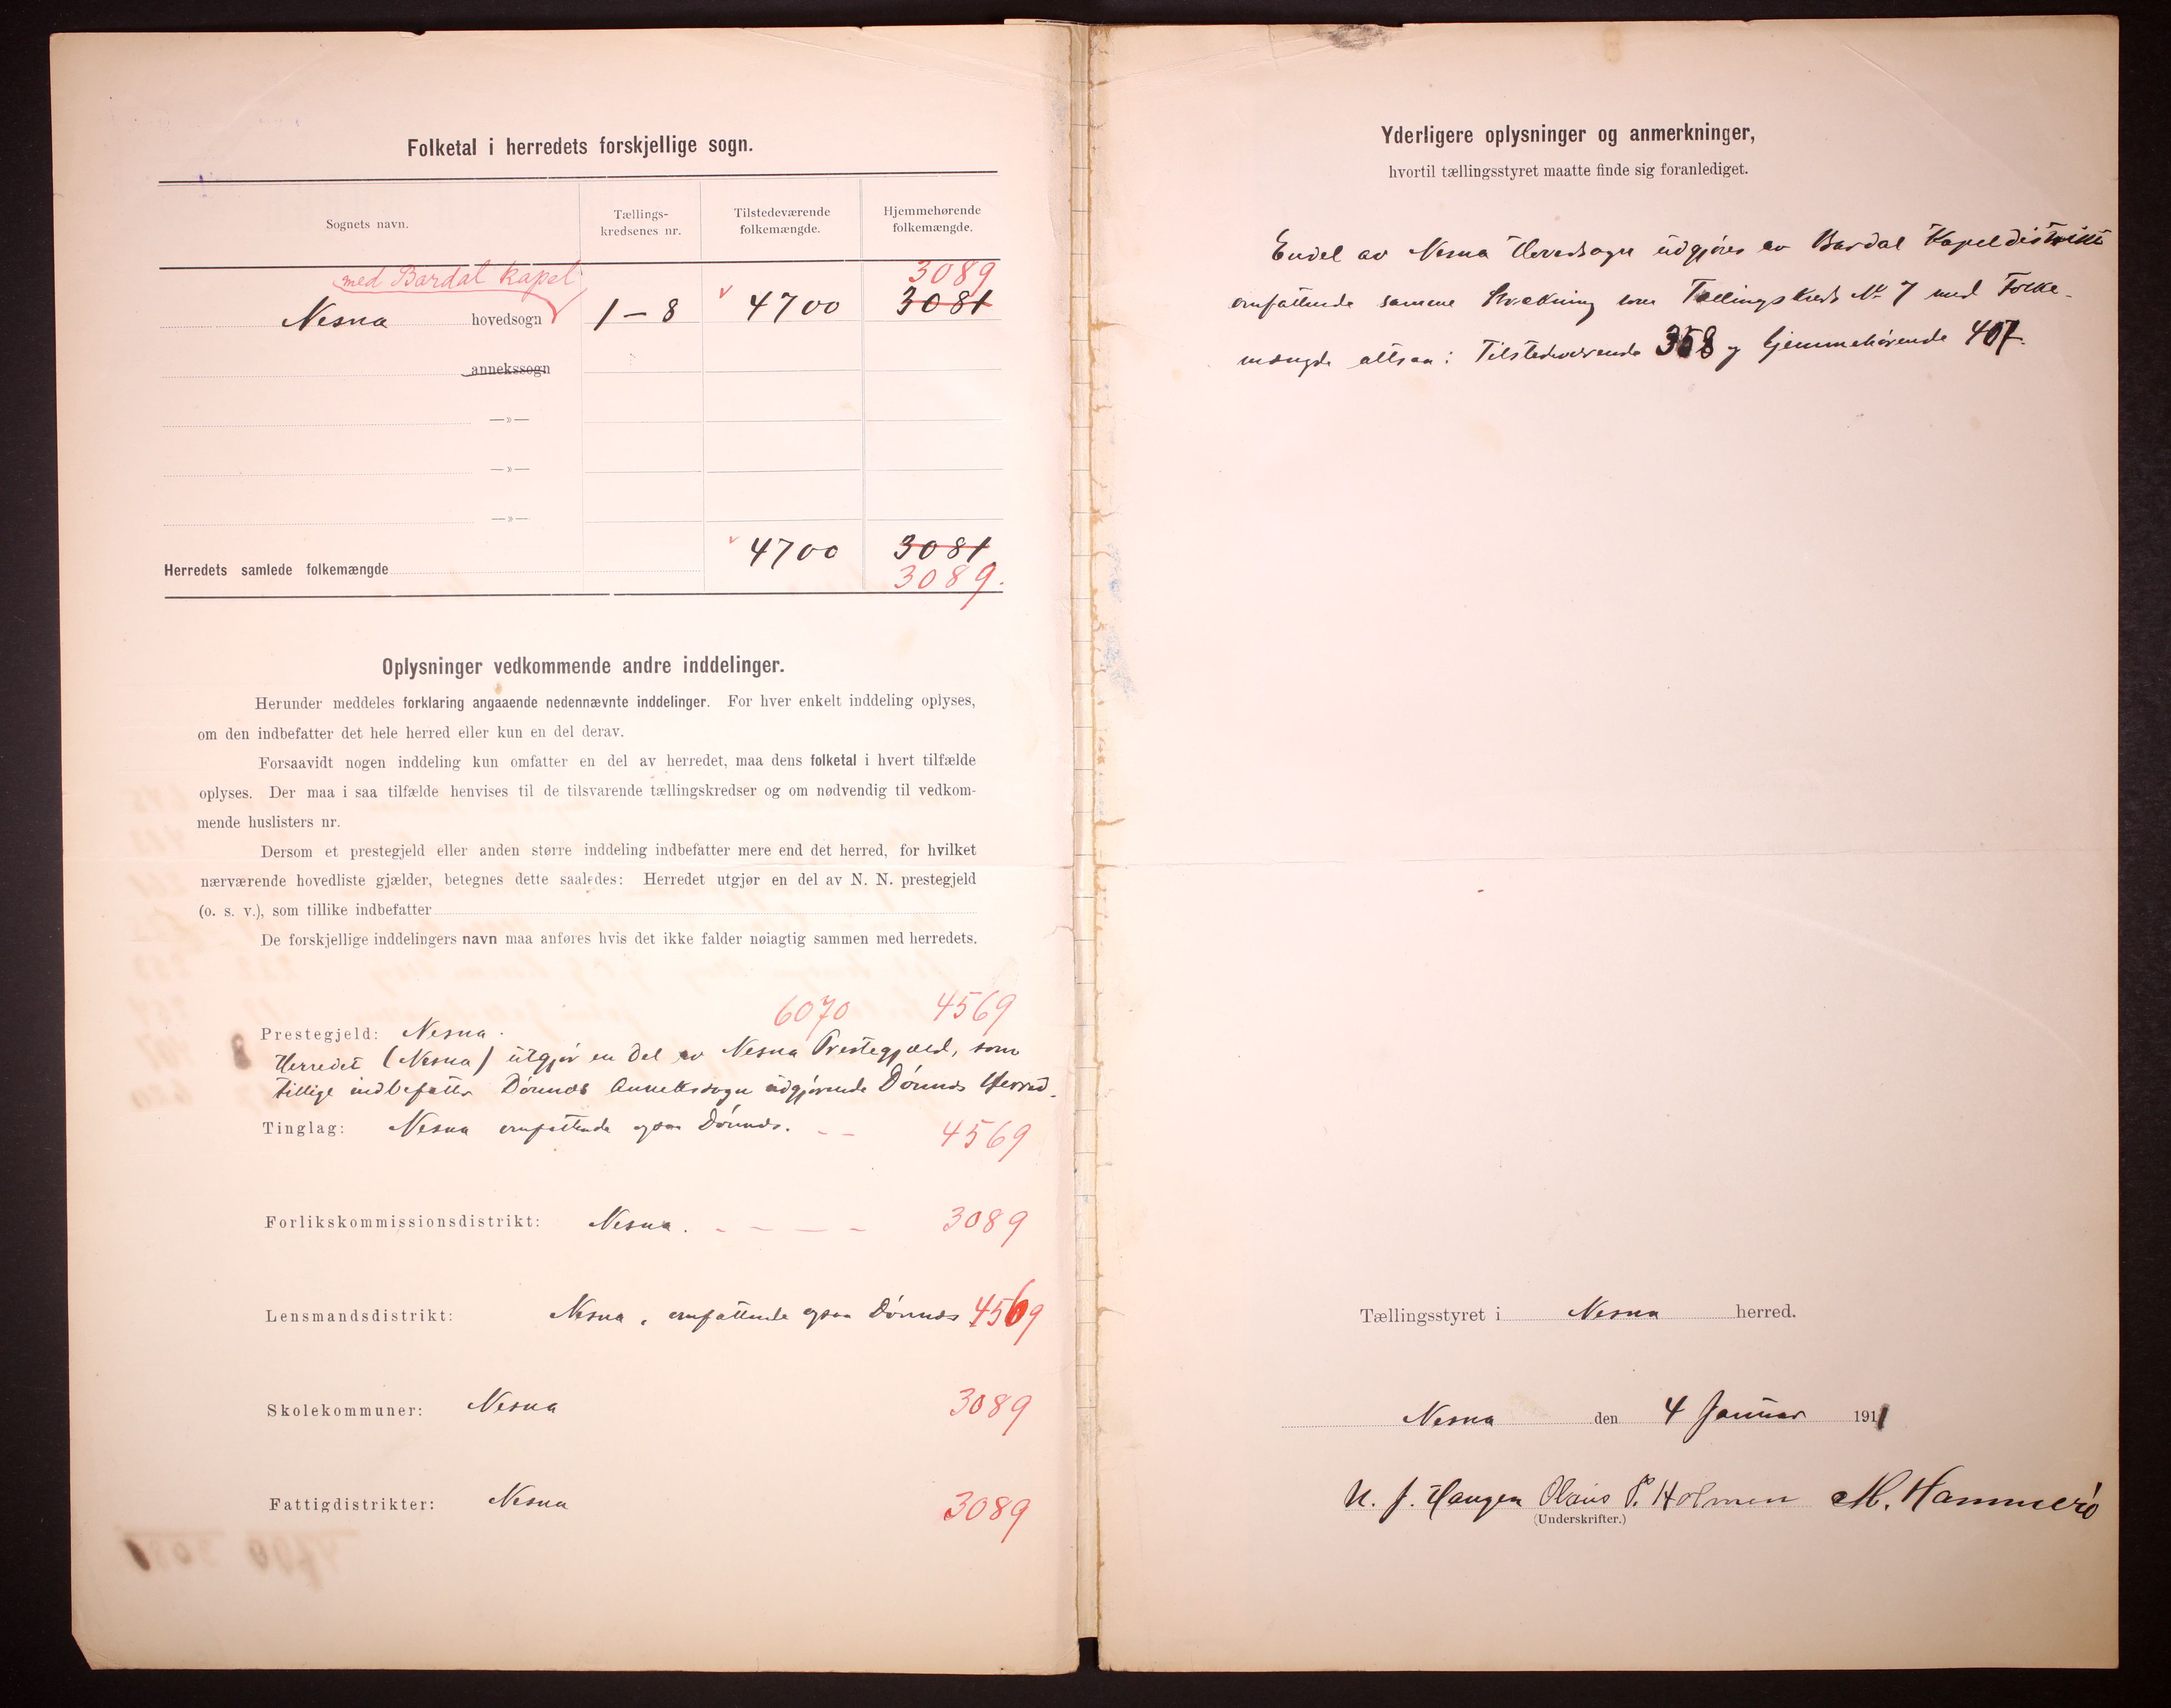 Folketal i herredets forskjellige sogn.
Sognets navn.
Tællings-
kredsenes nr.
Tilstedeværende
folkemængde.
Hjemmehørende
folkemængde.
med Bardal kapel
3089
Nesna hovedsogn 1-8 4700 3081
annekssogn
—»—
—»—
—»—
Herredets samlede folkemængde 4700 3081
3089.
Oplysninger vedkommende andre inddelinger.
Herunder meddeles forklaring angaaende nedennævnte inddelinger. For hver enkelt inddeling oplyses,
om den indbefatter det hele herred eller kun en del derav.
Forsaavidt nogen inddeling kun omfatter en del av herredet, maa dens folketal i hvert tilfælde
oplyses. Der maa i saa tilfælde henvises til de tilsvarende tællingskredser og om nødvendig til vedkom-
mende huslisters nr.
Dersom et prestegjeld eller anden større inddeling indbefatter mere end det herred, for hvilket
nærværende hovedliste gjælder, betegnes dette saaledes: Herredet utgjør en del av N. N. prestegjeld
(o. s. v.), som tillike indbefatter
De forskjellige inddelingers navn maa anføres hvis det ikke falder nøiagtig sammen med herredets.
6070 4569
Prestegjeld: Nesna.
Herredet (Nesna) utgjør en del av Nesna Prestegjæld, som
tillige indbefatter Dønnes Annekssogn udgjørende Dønnes Herred.
Tinglag: Nesna omfattende ogsaa Dønnes. 4569
Forlikskommissionsdistrikt: Nesna. 3089
Lensmandsdistrikt: Nesna, omfattende ogsaa Dønnes 4569
Skolekommuner: Nesna 3089
Fattigdistrikter: Nesna 3089
Yderligere oplysninger og anmerkninger,
hvortil tællingsstyret maatte finde sig foranlediget.
Endel av Nesna Hovedsogn udgjøres av Bardal Kapeldistrikt
omfattende samme Strækning som Tællingskreds No 7 med Folke-
mængde altsaa: Tilstedeværende 358 og hjemmehørende 407.
Tællingsstyret i Nesna herred.
Nesna den 4 Januar 1911
N. J. Haugen Olaus P. Holmen M. Hammerö
(Underskrifter.)